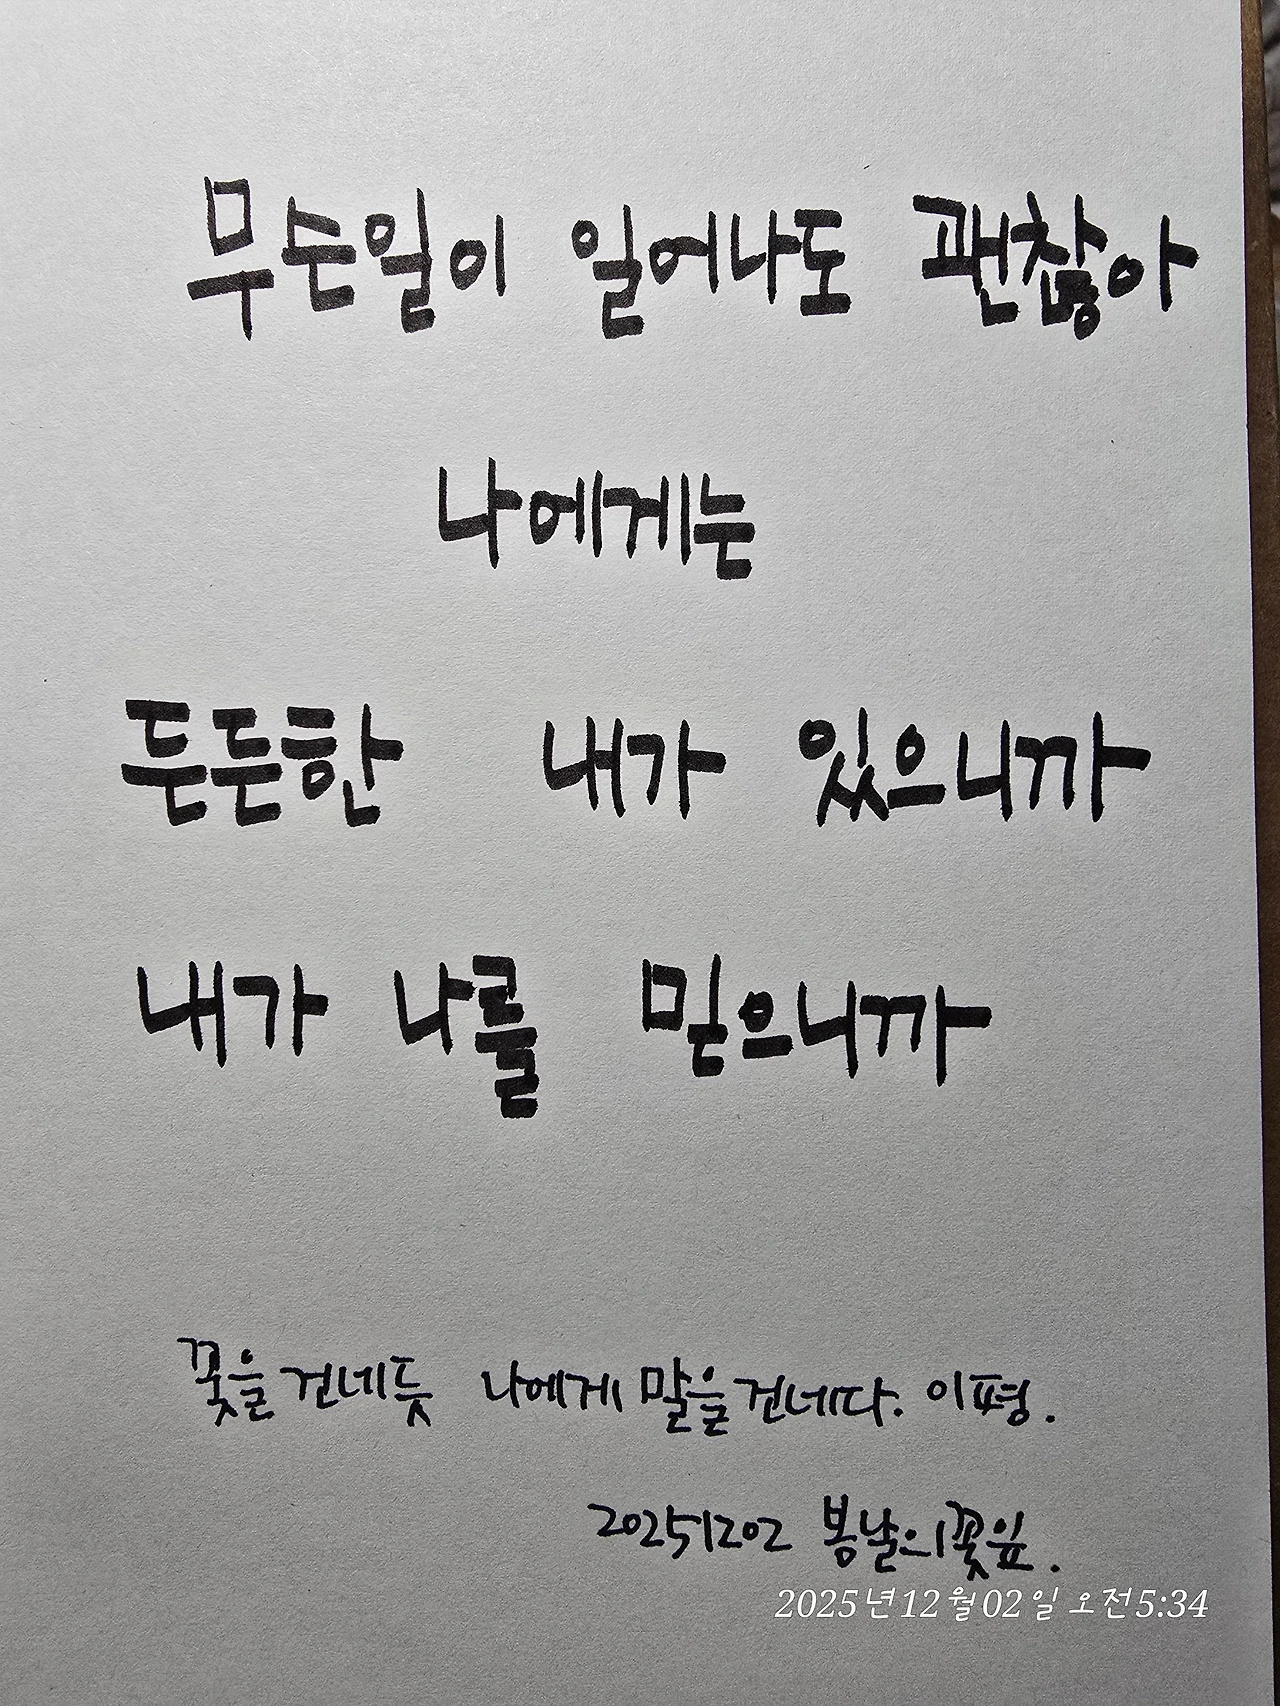 무슨일이 일어나도 괜찮아
나에게는
든든한 내가 있으니까
내가 나를 믿으니까
꽃을 건네듯 나에게 말을 건네다. 이평.
20251202 봄날의꽃잎.
2025년12월02일 오전5:34